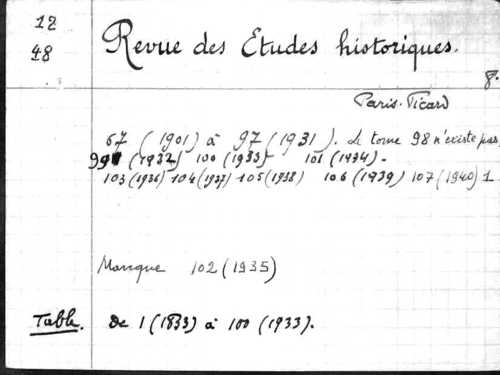 12
48
Revue des Etudes historiques.
8.
Paris. Picard
67 (1901) à 97 (1931). Le tome 98 n'existe pas,
99 (1932) 100 (1933) 101 (1934) -
103 (1936) 104 (1937) 105 (1938) 106 (1939) 107 (1940) 1
Manque 102 (1935)
Table. De 1 (1833) à 100 (1933).